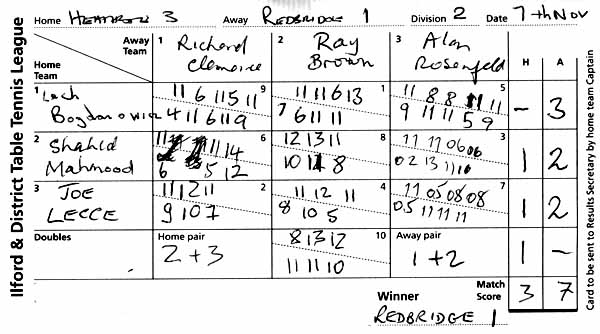 Ilford & District Table Tennis League
Home HEATHROW 3 Away REDBRIDGE 1 Division 2 Date 7thNov
Away Team 1 Richard Clemoice 2 Ray Brown 3 Alan Rosenfeld H A
Home Team
1 Lach Bogdanowicz 9 1 5 - 3
11 6 11 5 11 11 11 6 13 11 8 8 11 11
4 11 6 11 9 7 6 11 11 9 11 11 5 9
2 Shahid Mahmood 6 8 3 1 2
11 11 14 12 13 11 11 11 06 06
6 5 12 10 11 8 02 13 11 10
3 JOE LECCE 2 4 7 1 2
11 12 11 11 12 11 11 05 08 08
9 10 7 8 10 5 05 11 11 11
Doubles Home pair 10 Away pair 1 -
2+3 8 13 12 1+2
11 11 10
Winner Match Score 3 7
REDBRIDGE 1
Card to be sent to Results Secretary by home team Captain